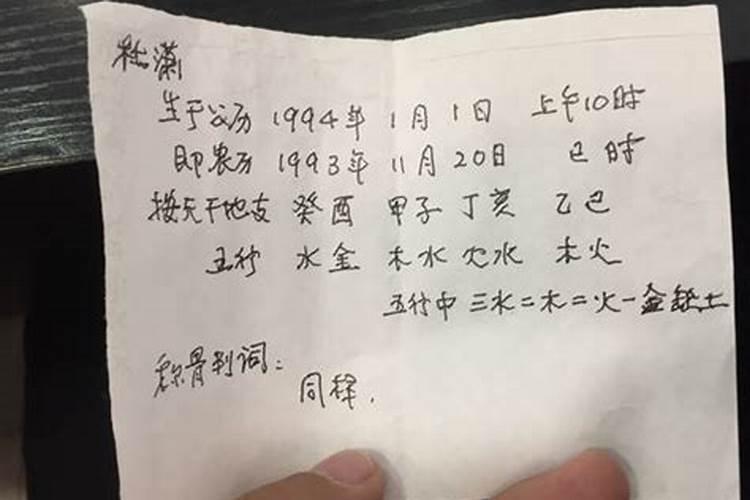 杜潇
生于公历 1994年 1月1日 上午10时
即农历 1993年 11月20日 巳时
按天干地支 癸酉 甲子 丁亥 乙巳
五行 水金 木水 火水 木火
五行中 三水二木二火一金缺土
称骨判词：
同样.